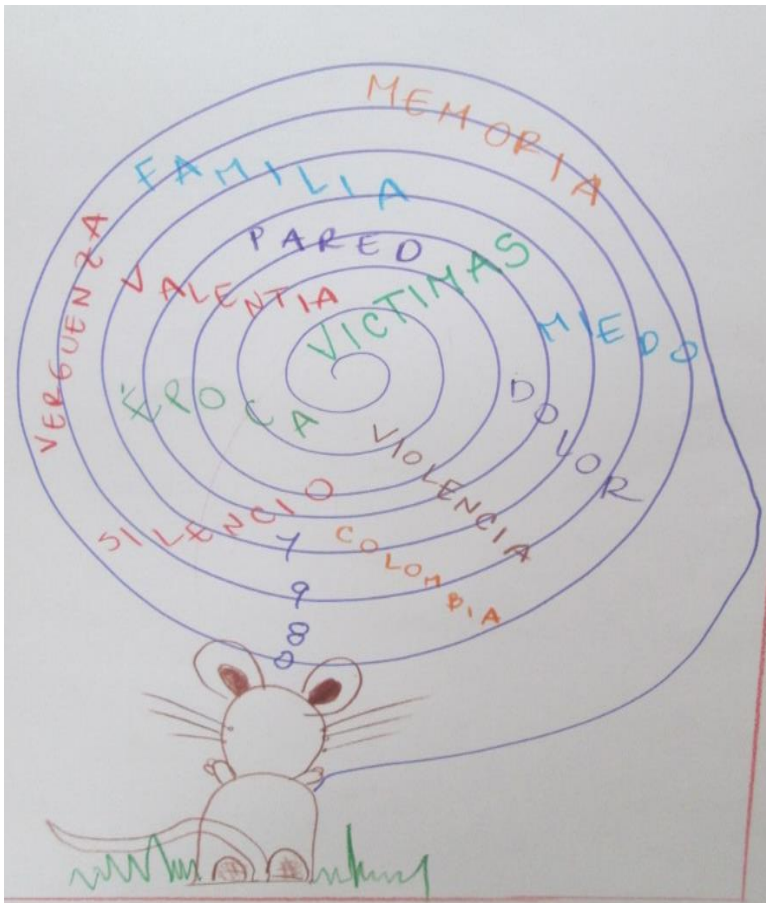 MEMORIA
FAMILIA
PARED
VERGUENZA
VALENTIA
VICTIMAS
MIEDO
ÉPOCA
DOLOR
VIOLENCIA
SILENCIO
COLOMBIA
1
9
8
0